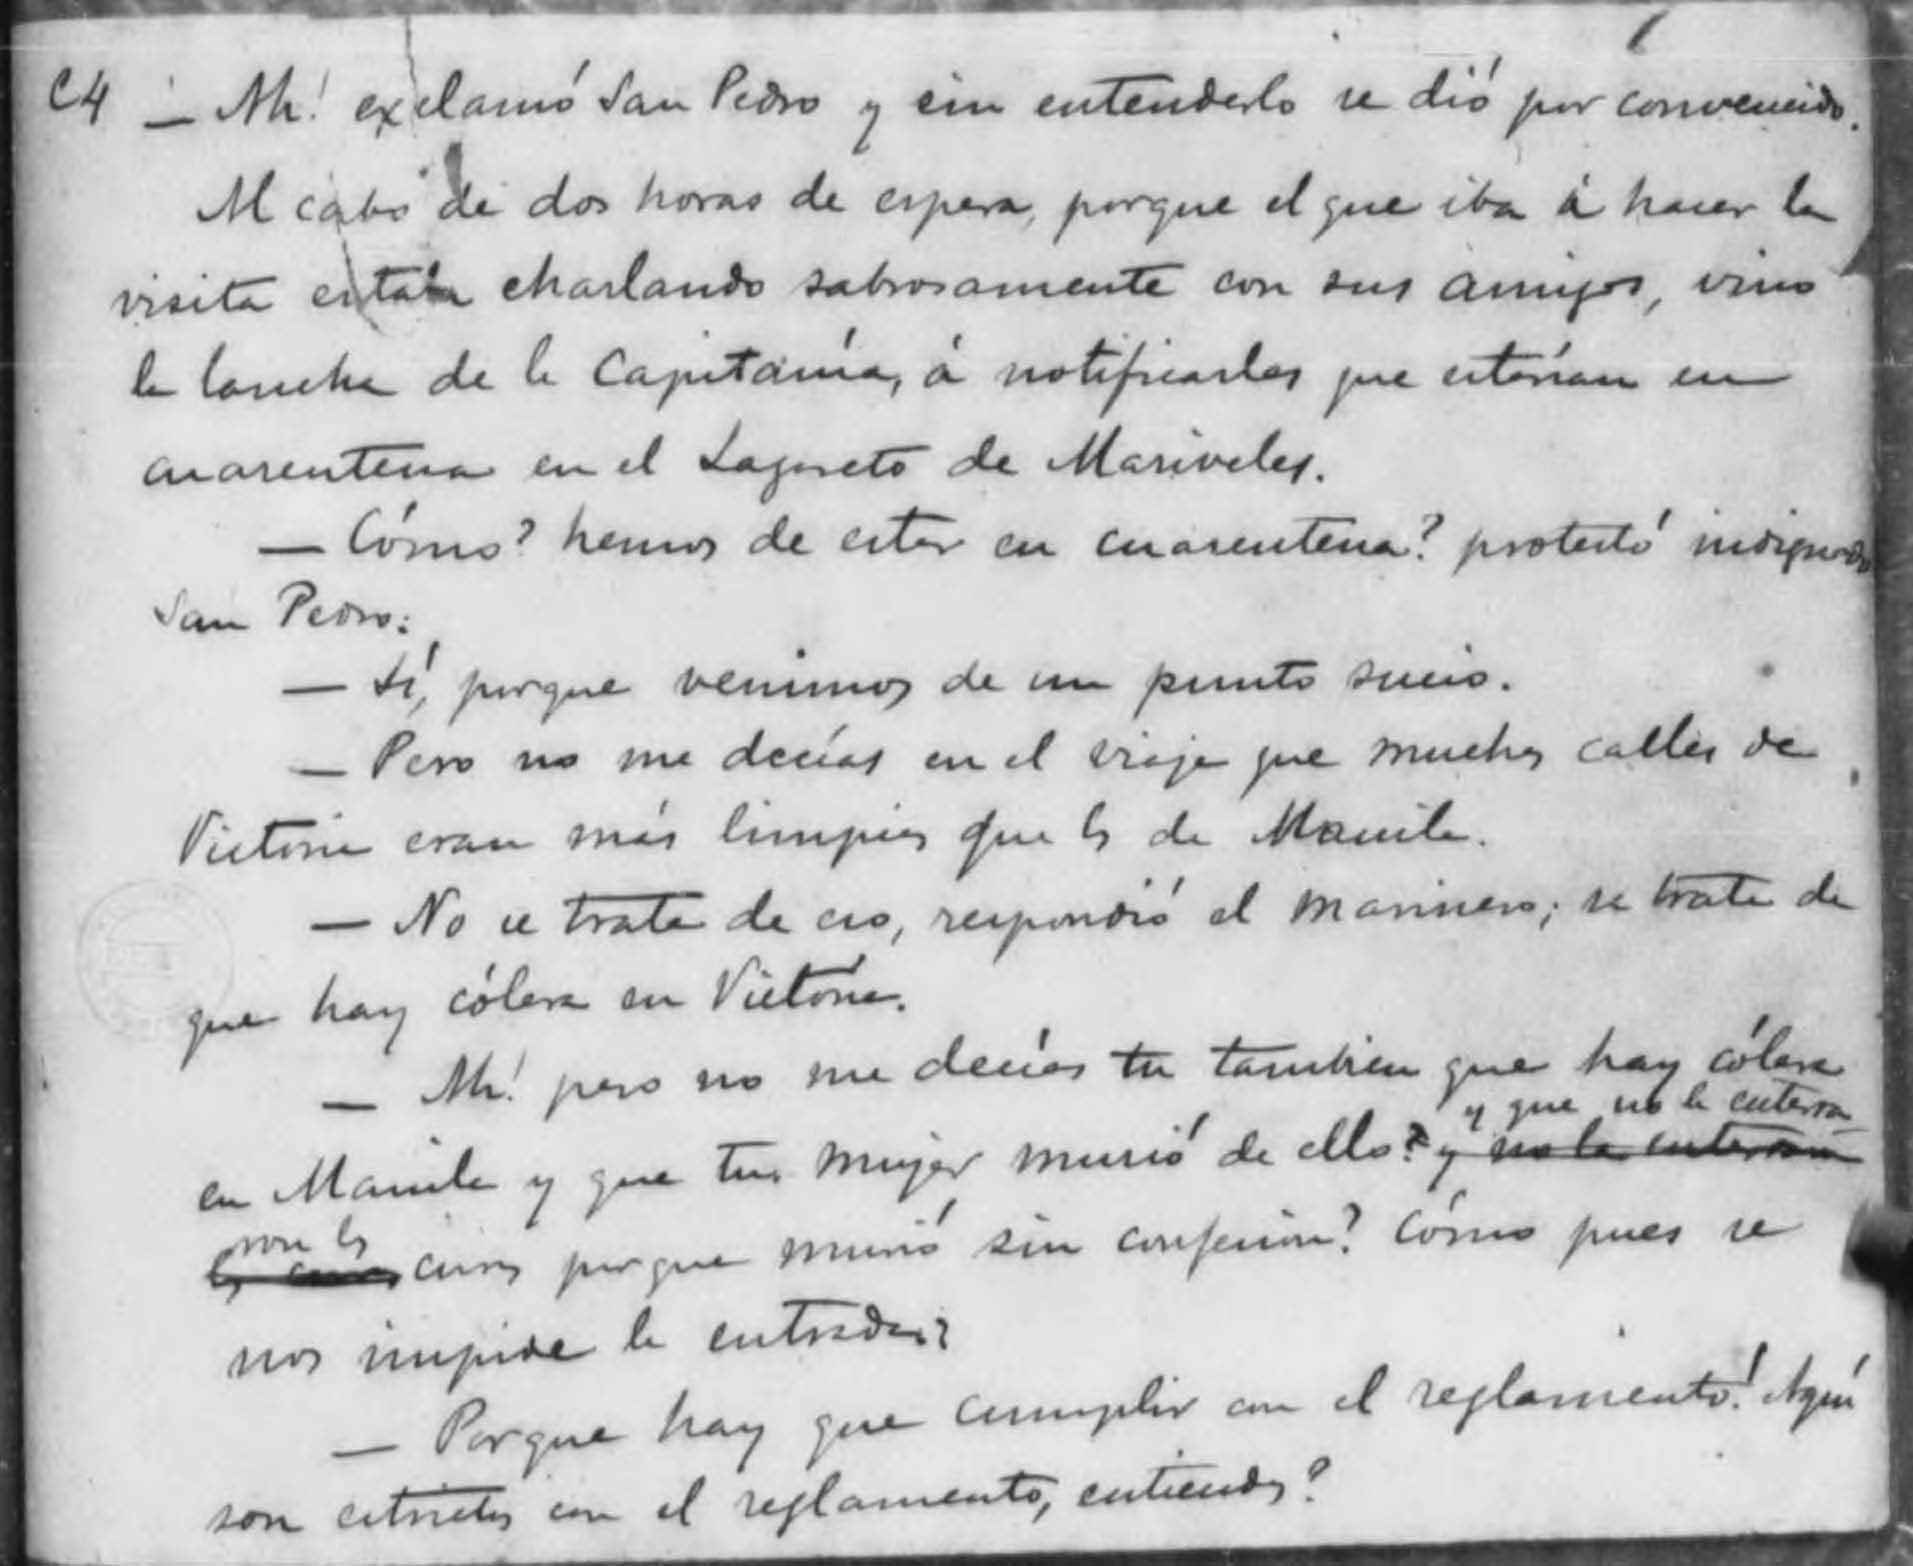 C4 — Ah! exclamó San Pedro y sin entenderlo se dió por convencido.
Al cabo de dos horas de espera, porque el que iba á hacer la
visita estaba charlando sabrosamente con sus amigos, vino
la lancha de la Capitanía, á notificarles que estarían en
cuarentena en el Lazareto de Mariveles.
— Cómo? hemos de estar en cuarentena? protestó indignado
San Pedro:
— Sí, porque venimos de un punto sucio.
— Pero no me decías en el viaje que muchas calles de
Victoria eran más limpias que las de Manila.
— No se trata de eso, respondió el marinero; se trata de
que hay cólera en Victoria.
— Ah! pero no me decías tu tambien que hay cólera
y que no la enterra-
en Manila y que tu mujer murió de ello? y no la enterraron
ron los
los curas curas porque murió sin confesion? Cómo pues se
nos impide la entrada?
— Porque hay que cumplir con el reglamento! Aquí
son estrictos con el reglamento, entiendes?